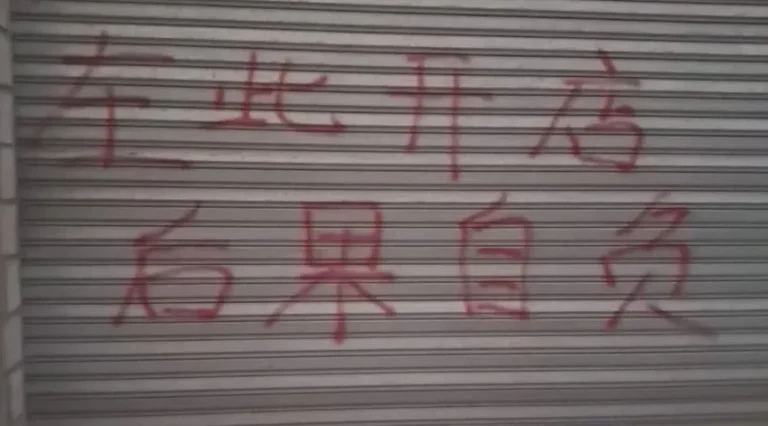 在此开店
后果自负